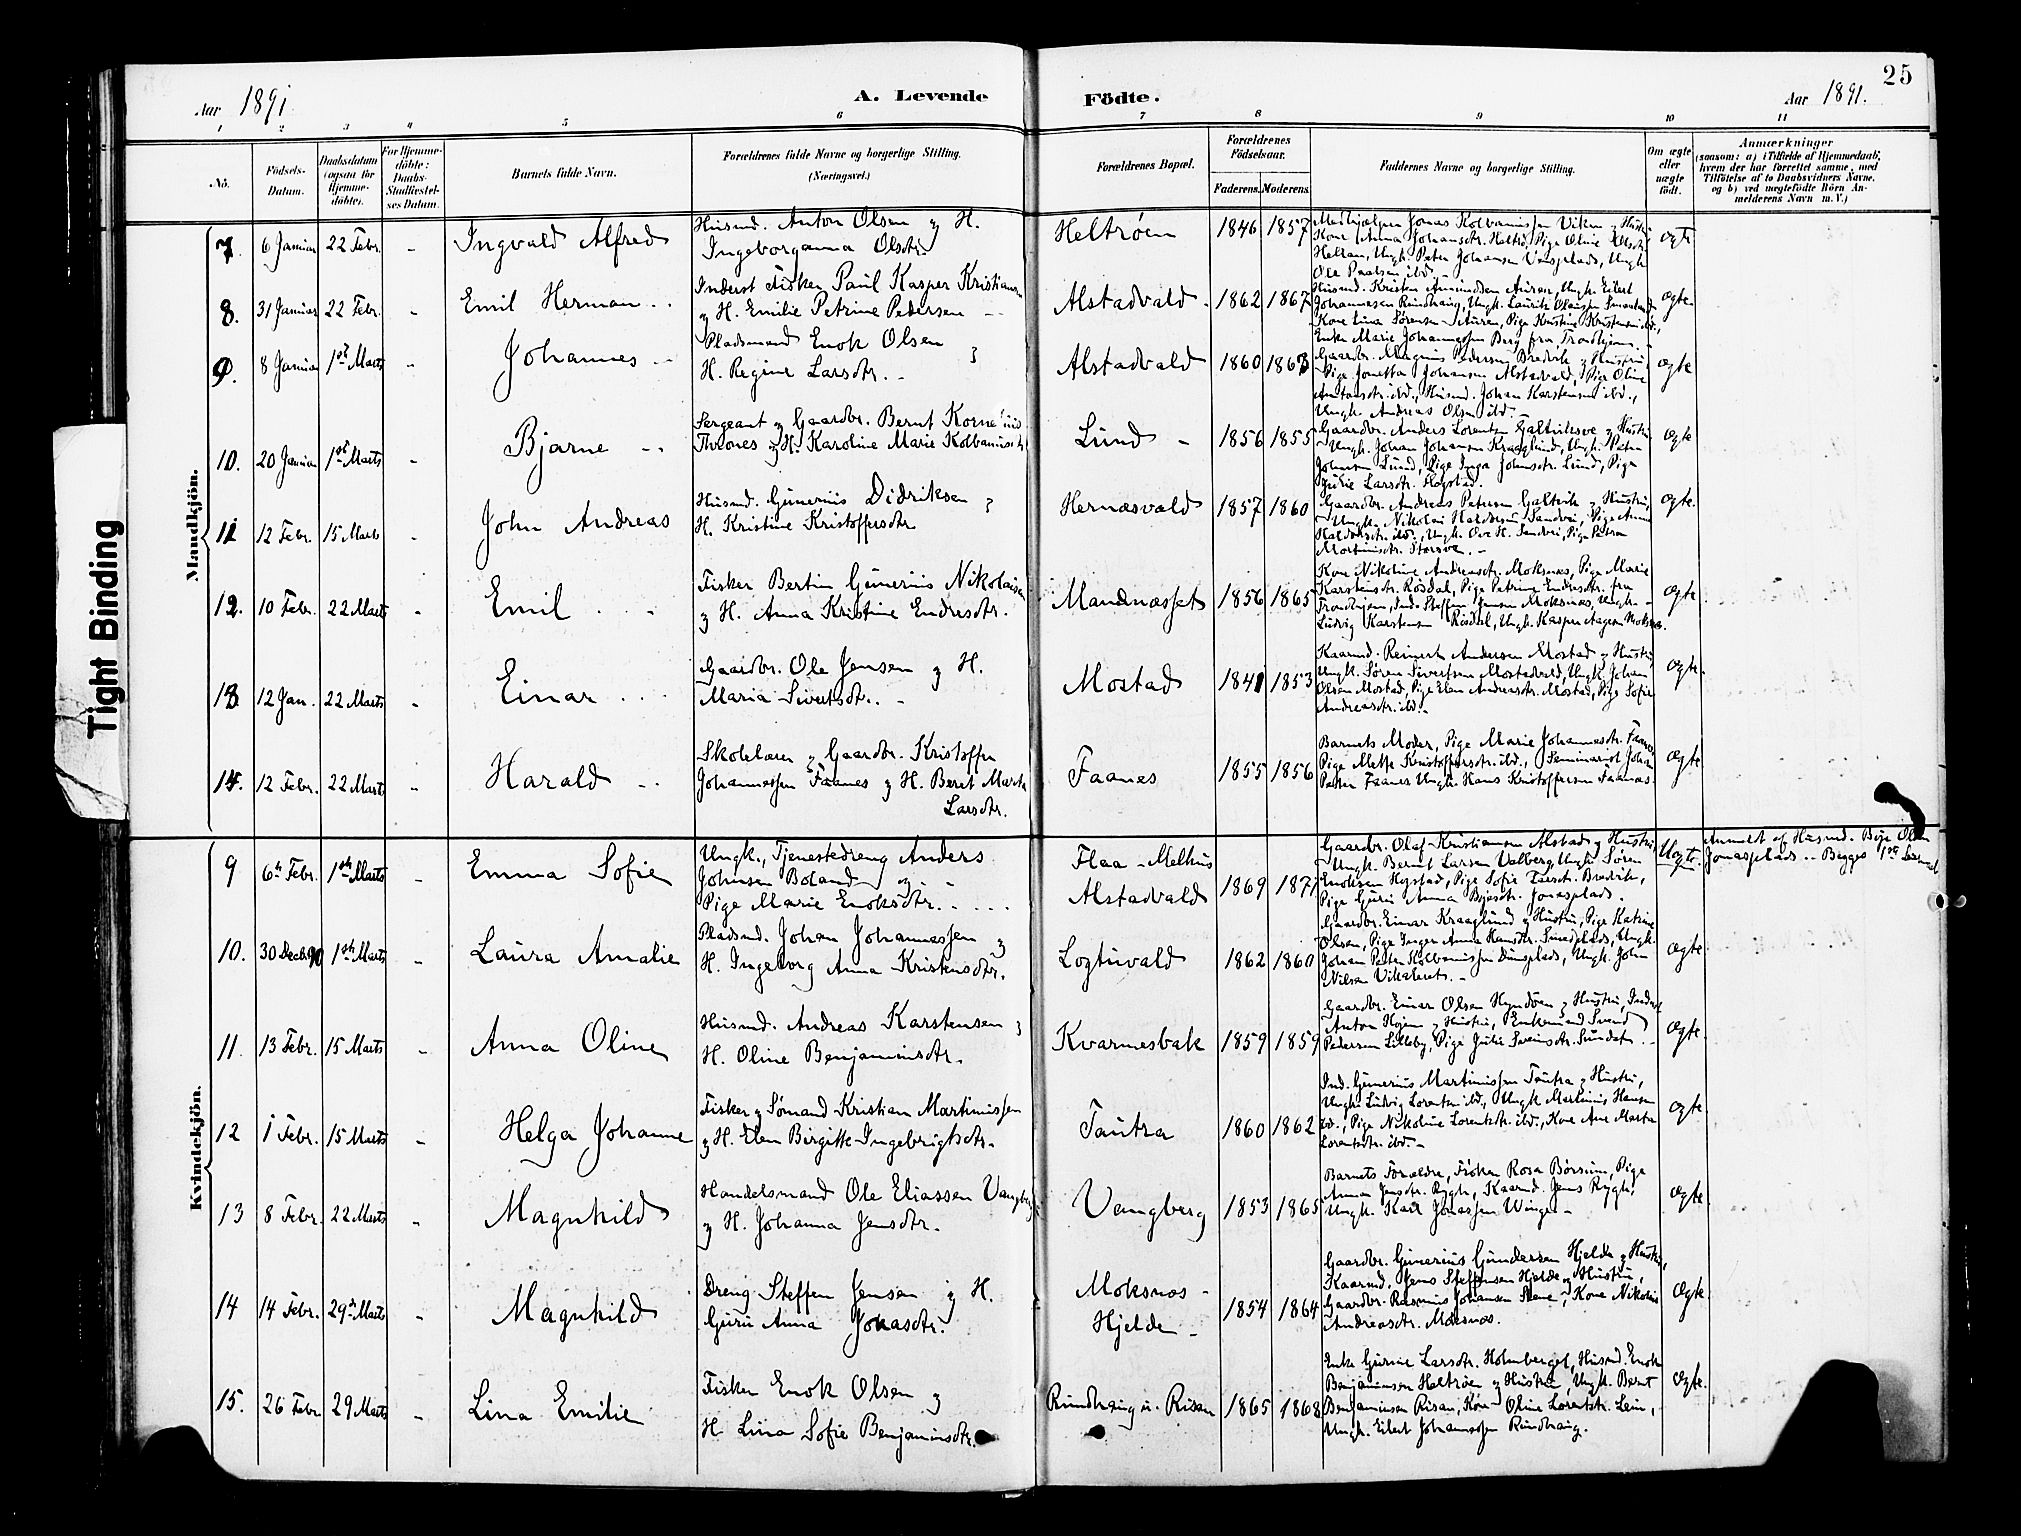 25
Aar 1891
A. Levende
Födte.
Aar 1891.
1 2 3 4 5 6 7 8 9 10 11
No.
Födsels-Datum.
Daabsdatum (ogsaa for Hjemme-döbte).
For Hjemme-döbte: Daabs-Stadfæstel-ses Datum.
Barnets fulde Navn.
Forældrenes fulde Navne og borgerlige Stilling.
(Næringsvei.)
Forældrenes Bopæl.
Forældrenes Födselsaar.
Faderens. Moderens.
Faddernes Navne og borgerlige Stilling.
Om ægte eller uægte födt.
Anmærkninger
(saasom: a) i Tilfælde af Hjemmedaab, hvem der har forrettet samme, med Tilföielse af to Daabsvidners Navne, og b) ved uægtefödte Börn An-melderens Navn m. V.)
Tight Binding
Mandkjön.
7. 6 Januar 22 Febr. - Ingvald Alfred
Husmd. Anton Olsen og H.
Ingeborganna Olsdtr.
Heltröen 1846 1857
Ole Paulsen ibd. -
ægte
8. 31 Januar 22 Febr. - Emil Herman
Inderst Fisker Paul Kasper Kristiansen
og H. Emilie Petrine Pedersen
Alstadvald 1862 1867
Husmd. Kristen Amundsen Auren, Ungk. Eilert
Johannesen Rundhaug, Ungk. Lauritz Olausen
Enke Marie Johannessen Berg fra Trondhjem. -
ægte.
9. 8 Januar 1ste Marts - Johannes
Pladsmand Enok Olsen og
H. Regine Larsdtr. -
Alstadvald 1860 1863
Gaardbr. Magnus Pedersen Bredvik og Hustru,
Pige Jonetta Johansen Alstadvald, Pige Oline
Antonsdtr. ibd., Husmd. Johan Karstensen ibd.,
Ungk. Andreas Olsen ibd. -
ægte
10. 20 Januar 1ste Marts - Bjarne
Sergeant og Gaardbr. Bernt Kornelius
Thrones og H. Karoline Marie Kolbanusdtr
Lund - 1856 1855
Gaardbr. Anders Lorentsen og Hustru
Ungk. Johan Johansen Kraaglund, Ungk. Peter
Johnsen Lund, Pige Inga Johnsdtr. Lund, Pige
Julie Larsdtr. Hogstad.
ægte
11 12 Febr. 15 Marts - John Andreas
Husmd. Gunerius Didriksen og
H. Kristine Kristoffersdtr
Hernæsvald 1857 1860
Gaardbr. Andreas Petersen Galtvik og Hustru,
Ungk. Nikolai Haldorsen Sandvei, Pige Anna
Haldorsdtr. ibd., Ungk. Ove H. Sandvei, Pige Petra
Martinusdtr. Storsve. -
ægte.
12. 10 Febr. 22 Marts - Emil
Fisker Bertin Gunerius Nikolaisen
og H. Anna Kristine Endresdtr.
Mandnæsset 1856 1865
Kone Nikoline Andreasdtr. Moksnæs, Pige Marie
Karstensdtr. Rösdal, Pige Petrine Endresdtr. fra
Trondhjem, Ind. Steffen Jensen Moksnæs, Ungk.
Ludvig Karstensen Rösdal, Ungk. Kasper Aagesen Moksnæs.
ægte.
13 12 Jan. 22 Marts - Einar
Gaardbr. Ole Jensen og H.
Maria Sivertsdtr. -
Mostad 1841 1853
Kaarmd. Reinert Andersen Mostad og Hustru,
Ungk. Sören Sivertsen Mostadvald, Ungk. Johan
Olsen Mostad, Pige Elen Andreasdtr. Mostad, Pige Sofie
Andreasdtr. ibd. -
ægte.
14. 12 Febr. 22 Marts - Harald
Skolelærer og Gaardbr. Kristoffer
Johannessen Faanes og H. Beret Marta
Larsdtr.
Faanes 1855 1856
Barnets Moder, Pige Marie Johannesdtr. Faanes
Pige Mette Kristoffersdtr. ibd., Seminarist Johan
Petter Faanes Ungk. Hans Kristoffersen Faanes.
ægte.
Kvindekjön.
9 6te Febr. 1ste Marts - Emma Sofie
Ungk., Tjenestedreng Anders
Johnsen Boland og
Pige Marie Enoksdtr.
Flaa - Melhus
Alstadvald 1869 1871
Gaardbr. Olaf Kristiansen Alstad og Hustru
Ungk. Bernt Larsen Valberg Ungk. Sören
Enoksen Hogstad, Pige Sofie Larsdtr. Bredvik,
Pige Guru Anna Bojesdtr. Jonasplads.
Uægte
Anmeldt af Husmd. Boje Olsen
Jonasplads. - Begges 1ste
10. 30 Decb. 90 1ste Marts - Laura Amalie
Pladsmd. Johan Johannessen og
H. Ingeborg Anna Kristensdtr.
Logtuvald 1862 1860
Gaardbr. Einar Kraaglund og Hustru, Pige Katrine
Olsen, Pige Inger Anna Hansdtr. Smedplads, Ungk.
Johan Peter Kolbanussen Dunsplads, Ungk. John
Nilsen Vikaleret. -
ægte
11. 13 Febr. 15 Marts - Anna Oline
Husmd. Andreas Karstensen og
H. Oline Benjaminsdtr.
Kvarmesbak 1859 1859
Gaardbr. Einar Olsen Hynd­öen og Hustru, Inderst
Anton Hojem og Hustru, Enkemand Svend
Pedersen Lilleby, Pige Julie Svensdtr. Sundet. -
ægte.
12 1 Febr. 15 Marts - Helga Johanne
Fisker og Sömand Kristian Martinussen
og H. Elen Birgitte Ingebrigtsdtr.
Tautra 1860 1862
Ind. Gunerius Martinussen Tautra og Hustru,
Ungk. Ludvig Lorentsen ibd., Ungk. Martinus Hansen
ibd., Pige Nikoline Lorentsdtr. ibd., Kone Ane Marta
Lorentsdtr. ibd. -
ægte.
13 8 Febr. 22 Marts - Magnhild
Handelsmand Ole Eliassen Vangberg
og H. Johanna Jensdtr.
Vangberg 1853 1865
Barnets Forældre, Fröken Rosa Börsum, Pige
Anna Jensdtr. Rygh, Kaarmd. Jens Rygh,
Ungk. Karl Jonassen Winge. -
ægte.
14 14 Febr. 29de Marts - Magnhild
Dreng Steffen Jensen og H.
Guru Anna Jonasdtr.
Moksnæs -
Hjelde - 1854 1864
Gaardbr. Gunerius Gundersen Hjelde og Hustru,
Kaarmd. Jens Steffensen Hjelde og Hustru,
Gaardbr. Rasmus Johansen Stene, Kone Nikoline
Andreasdtr. Moksnæs.
Ægte.
15. 26 Febr 29 Marts - Lina Emilie
Fisker Enok Olsen og
H Lina Sofie Benjaminsdtr.
Rundhaug u. Risan 1865 1868
Enke Gurine Larsdtr. Holmberget, Husmd. Enok
Benjaminsen Heltröen og Hustru, Ungk. Bernt
Benjaminsen Risan, Kone Oline Lorentsdtr. Lein,
Ungk. Eilert Johannessen Rundhaug.
Ægte.